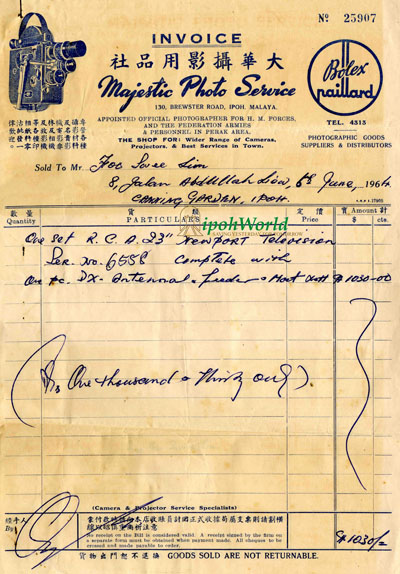 Nº 25907
INVOICE
大華攝影用品社
Majestic Photo Service
130, BREWSTER ROAD, IPOH. MALAYA.
APPOINTED OFFICIAL PHOTOGRAPHER FOR H. M. FORCES,
AND THE FEDERATION ARMIES
& PERSONNEL IN PERAK AREA.
THE SHOP FOR: Wider Range of Cameras,
Projectors, & Best Services in Town.
Bolex
paillard
TEL. 4313
PHOTOGRAPHIC GOODS
SUPPLIERS & DISTRIBUTORS
Sold To Mr. Foo Swee Lim
8, Jalan Abdullah 6th June, 1964
CANNING GARDEN, IPOH.
數量 定價
Quantity PARTICULARS Price $ cts.
ipohWorld
SAVING YESTERDAY FOR TOMORROW
One set R.C.A. 23" NEWPORT Television
Ser. No. 6558 complete with
One pc. DX-Antennal + feeder + Mast $1030-00
($s One thousand & thirty only)
(Camera & Projector Service Specialists)
經手人
By
No receipt on the Bill is considered valid. A receipt signed by the firm on
a separate form must be obtained when payment made. All cheques to be
crossed and made payable to order.
$1030/=
貨物出門恕不退換 GOODS SOLD ARE NOT RETURNABLE.